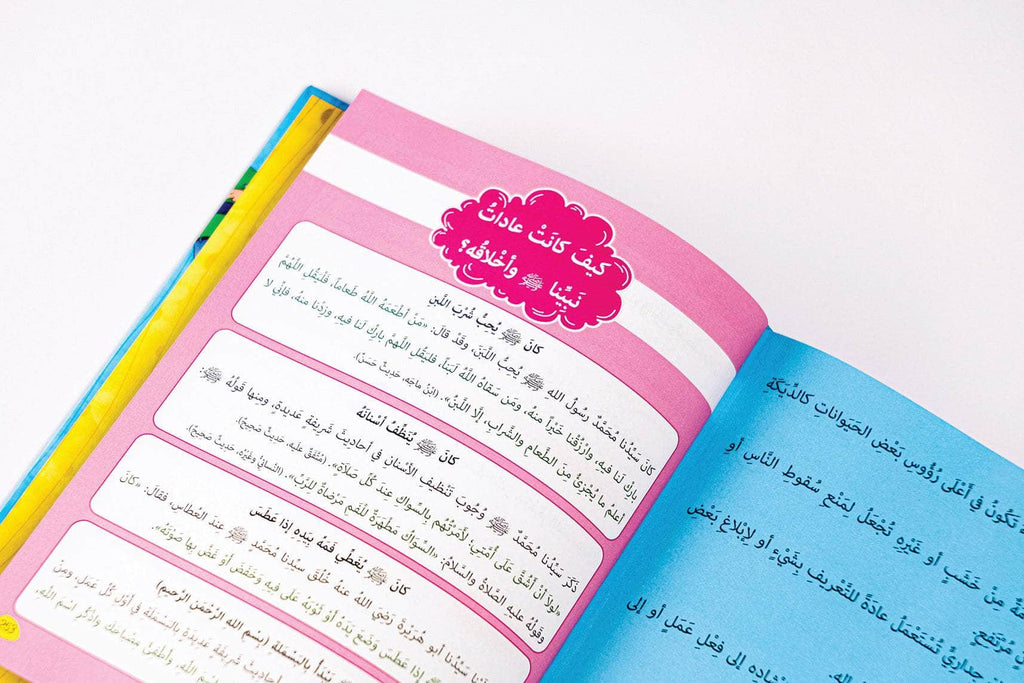 كيفَ كانَتْ عاداتُ
نَبِيِّنا ﷺ وأخْلاقُه؟
كانَ ﷺ يُحِبُّ شُرْبَ اللَّبَنِ
كانَ سَيِّدُنا مُحَمَّدٌ رسولُ الله ﷺ يُحِبُّ اللَّبَنَ، وقَدْ قالَ: «مَنْ أطْعَمَهُ اللَّهُ طَعاماً، فَلْيَقُلِ اللَّهُمَّ
بارِكْ لَنا فيهِ، وارْزُقْنا خَيْراً منهُ، ومَن سَقاهُ اللَّهُ لَبَناً، فليَقُلِ اللَّهمَّ بارِكْ لَنا فيهِ، وزِدْنا منهُ، فإنِّي لا
أعلمُ ما يُجْزِئُ مِنَ الطَّعامِ والشَّرابِ، إلَّا اللَّبَنُ». (ابْنُ ماجه، حَديثٌ حَسَنٌ).
كانَ ﷺ يُنَظِّفُ أسْنانَهُ
ذَكَرَ سَيِّدُنا مُحَمَّدٌ ﷺ وُجُوبَ تَنْظيفِ الأسْنانِ في أحاديثَ شَريفَةٍ عَديدةٍ، ومِنها قَولُهُ ﷺ:
«لَولا أنْ أشُقَّ على أُمَّتي؛ لأمَرْتُهُم بالسِّواكِ عِندَ كُلِّ صَلاة». (مُتَّفَقٌ عليه، حَديثٌ صَحيحٌ).
وقَولُهُ عليهِ الصَّلاةُ والسَّلامُ: «السِّواكُ مَطهَرةٌ للفَمِ مَرْضاةٌ للرَّبِّ». (النَّسائيُّ وغَيْرُه، حَديثٌ صَحيحٌ).
كانَ ﷺ يُغَطِّي فَمَهُ بِيَدِهِ إذا عَطَسَ
سَيِّدُنا أبو هُرَيْرةَ رَضيَ اللَّهُ عنهُ خُلُقَ سَيِّدِنا مُحَمَّدٍ ﷺ عِندَ العُطاسِ، فقالَ: «كانَ
إذا عَطَسَ وَضَعَ يَدَهُ أوْ ثَوْبَهُ على فيهِ وخَفَضَ أوْ غَضَّ بِها صَوْتَهُ».
يَبْدَأُ بالبَسْمَلةِ (بِسْمِ اللهِ الرَّحْمَنِ الرَّحيمِ)
أحاديثَ شَريفةٍ عَديدةٍ بالبَسْمَلةِ في أوَّلِ كُلِّ عَمَلٍ، ومِنْ
اسْمَ اللهِ، وأطْفِئْ مِصْباحَكَ واذْكُرِ اسْمَ اللهِ،
تَكونُ في أعْلَى رُؤُوسِ بَعْضِ الحَيواناتِ كالدِّيَكَةِ
مِنْ خَشَبٍ أو غَيْرِهِ تُجْعَلُ لِمَنْعِ سُقوطِ النَّاسِ أو
مُرْتَفِعٍ.
جِداريٌّ تُسْتَعْمَلُ عادَةً للتَّعْريفِ بِشَيْءٍ أو لإبْلاغِ بَعْضِ
إلى فِعْلِ عَمَلٍ أو إلى